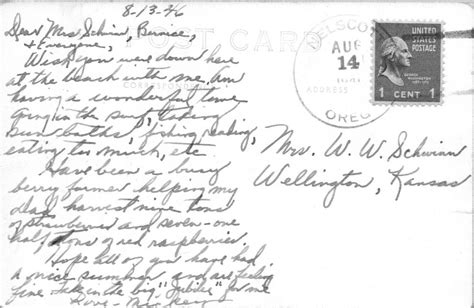 8-13-46
Dear Mrs. Schwinn, Bernice,
& Everyone,
Wish you were down here
at the beach with me. Am
having a wonderful time
going in the surf, taking
sun baths, fishing, reading,
eating too much, etc.
Have been a busy
berry farmer helping my
dad harvest nine tons
of strawberries and seven-one
half tons of red raspberries.
Hope all of you have had
a nice summer and are feeling
fine. Take in the big "Jubilee" for me
Love-
POST CARD
CORRESPONDENCE
ADDRESS
DELSCO
AUG
14
OREG
UNITED
STATES
POSTAGE
1 CENT 1
Mrs. W. W. Schwinn
Wellington, Kansas